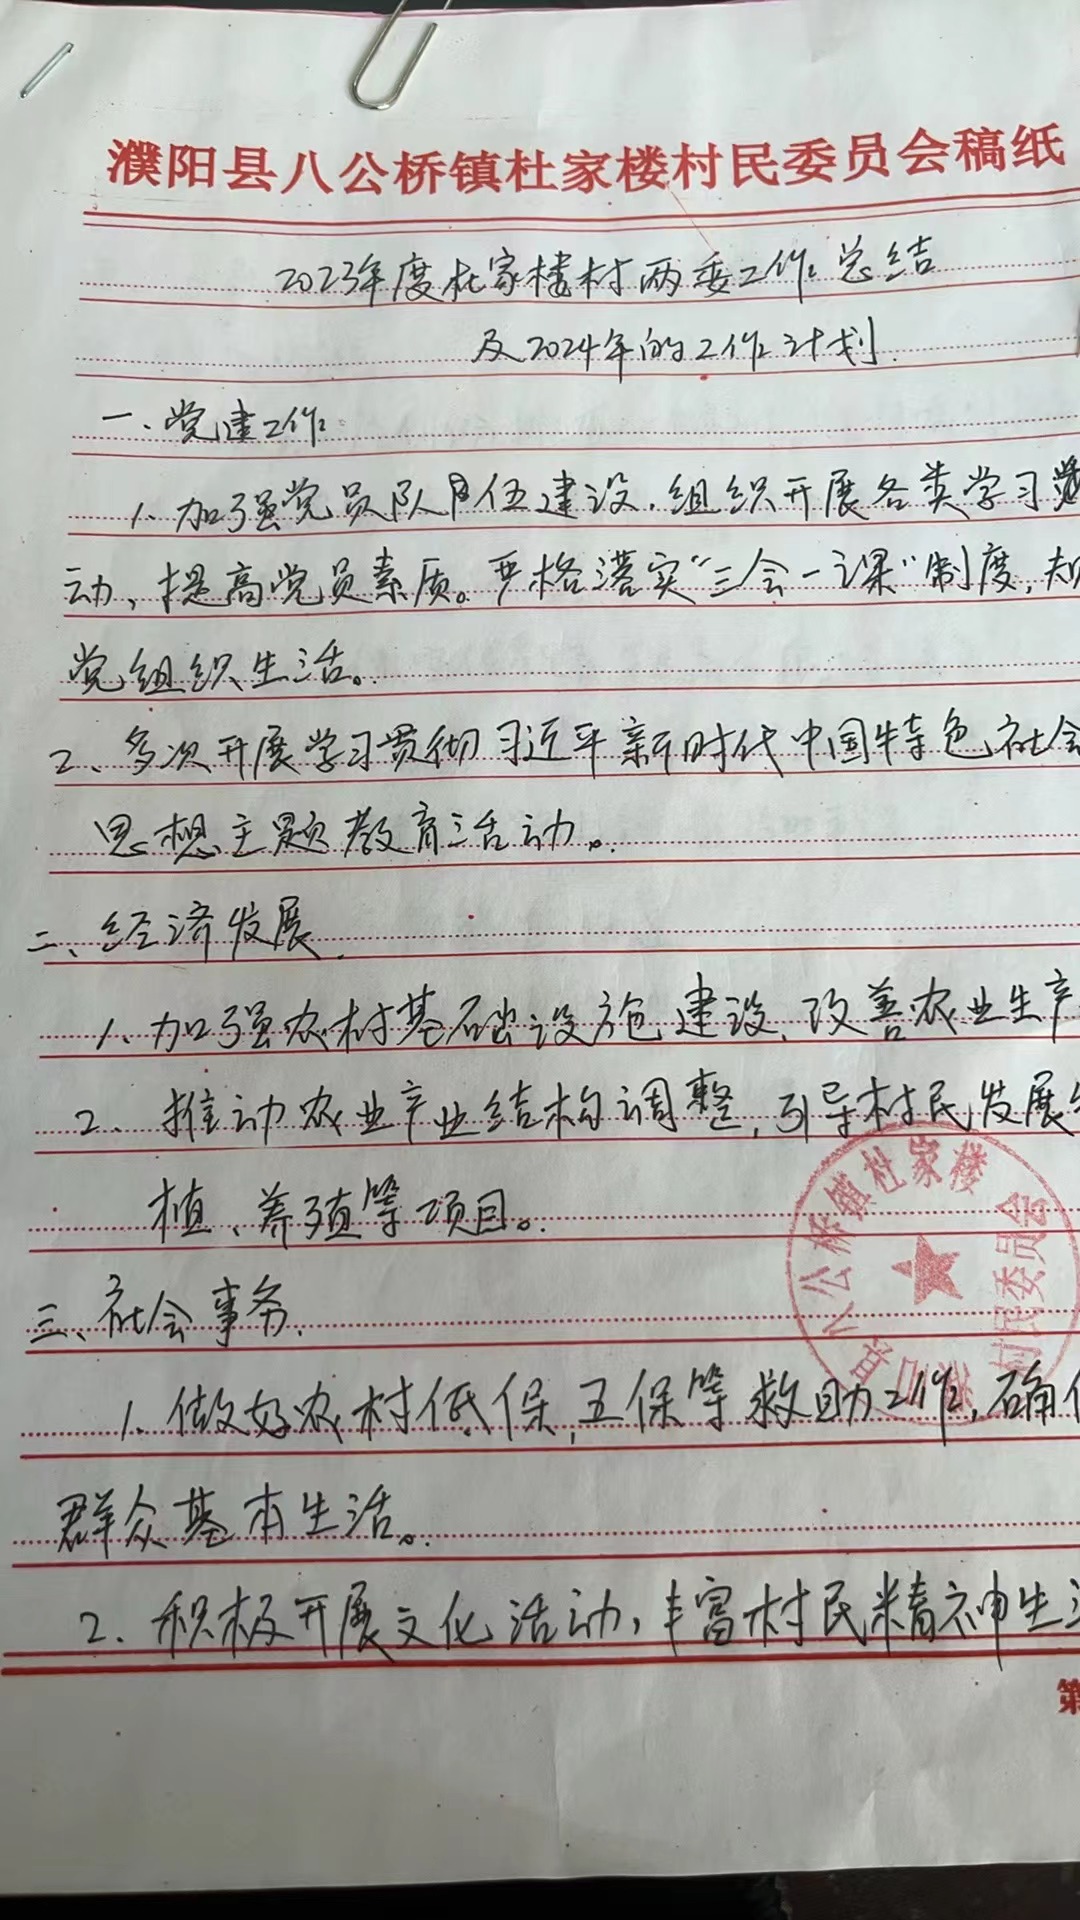 濮阳县八公桥镇杜家楼村民委员会稿纸
2023年度杜家楼村两委工作总结
及2024年的工作计划
一、党建工作
1、加强党员队伍建设，组织开展各类学习
动，提高党员素质。严格落实“三会一课”制度，规
党组织生活。
2、多次开展学习贯彻习近平新时代中国特色社会
思想主题教育活动。
二、经济发展
1、加强农村基础设施建设，改善农业生产
2、推动农业产业结构调整，引导村民发展
植、养殖等项目。
八公桥镇杜家楼
村民委员会
三、社会事务
1、做好农村低保，五保等救助工作，确保
群众基本生活。
2、积极开展文化活动，丰富村民精神生活
第